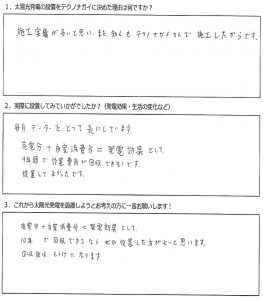 1. 太陽光発電の設置をテクノナガイに決めた理由は何ですか?
施工実績が多いと思い、また、知人もテクノナガイさんで施工したからです。
2. 実際に設置してみていかがでしたか?(発電効果・生活の変化など)
毎月データーをとって表にしています。
売電分+自家消費分=発電効果として、
9年弱で設置費用が回収できそうです。
設置してよかったです。
3. これから太陽光発電を設置しようとお考えの方に一言お願いします!
売電分+自家消費分=発電効果として、
10年で回収できるなら、ぜひ設置した方がよいと思います。
回収後は、もうけになります。